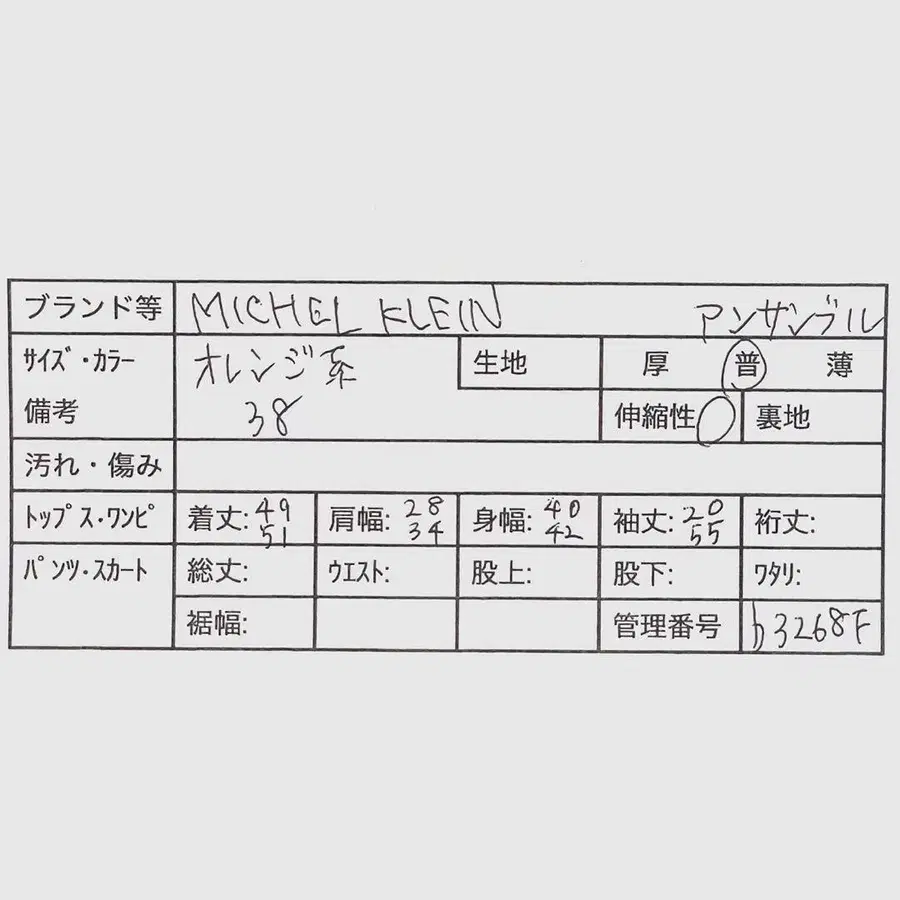 ブランド等 MICHEL KLEIN アンサンブル
サイズ・カラー オレンジ系 生地 厚 普 薄
備考 38 伸縮性 裏地
汚れ・傷み
トップス・ワンピ 着丈: 49 肩幅: 28 身幅: 40 袖丈: 20 裄丈:
51 34 42 55
パンツ・スカート 総丈: ウエスト: 股上: 股下: ワタリ:
裾幅: 管理番号 b3268F